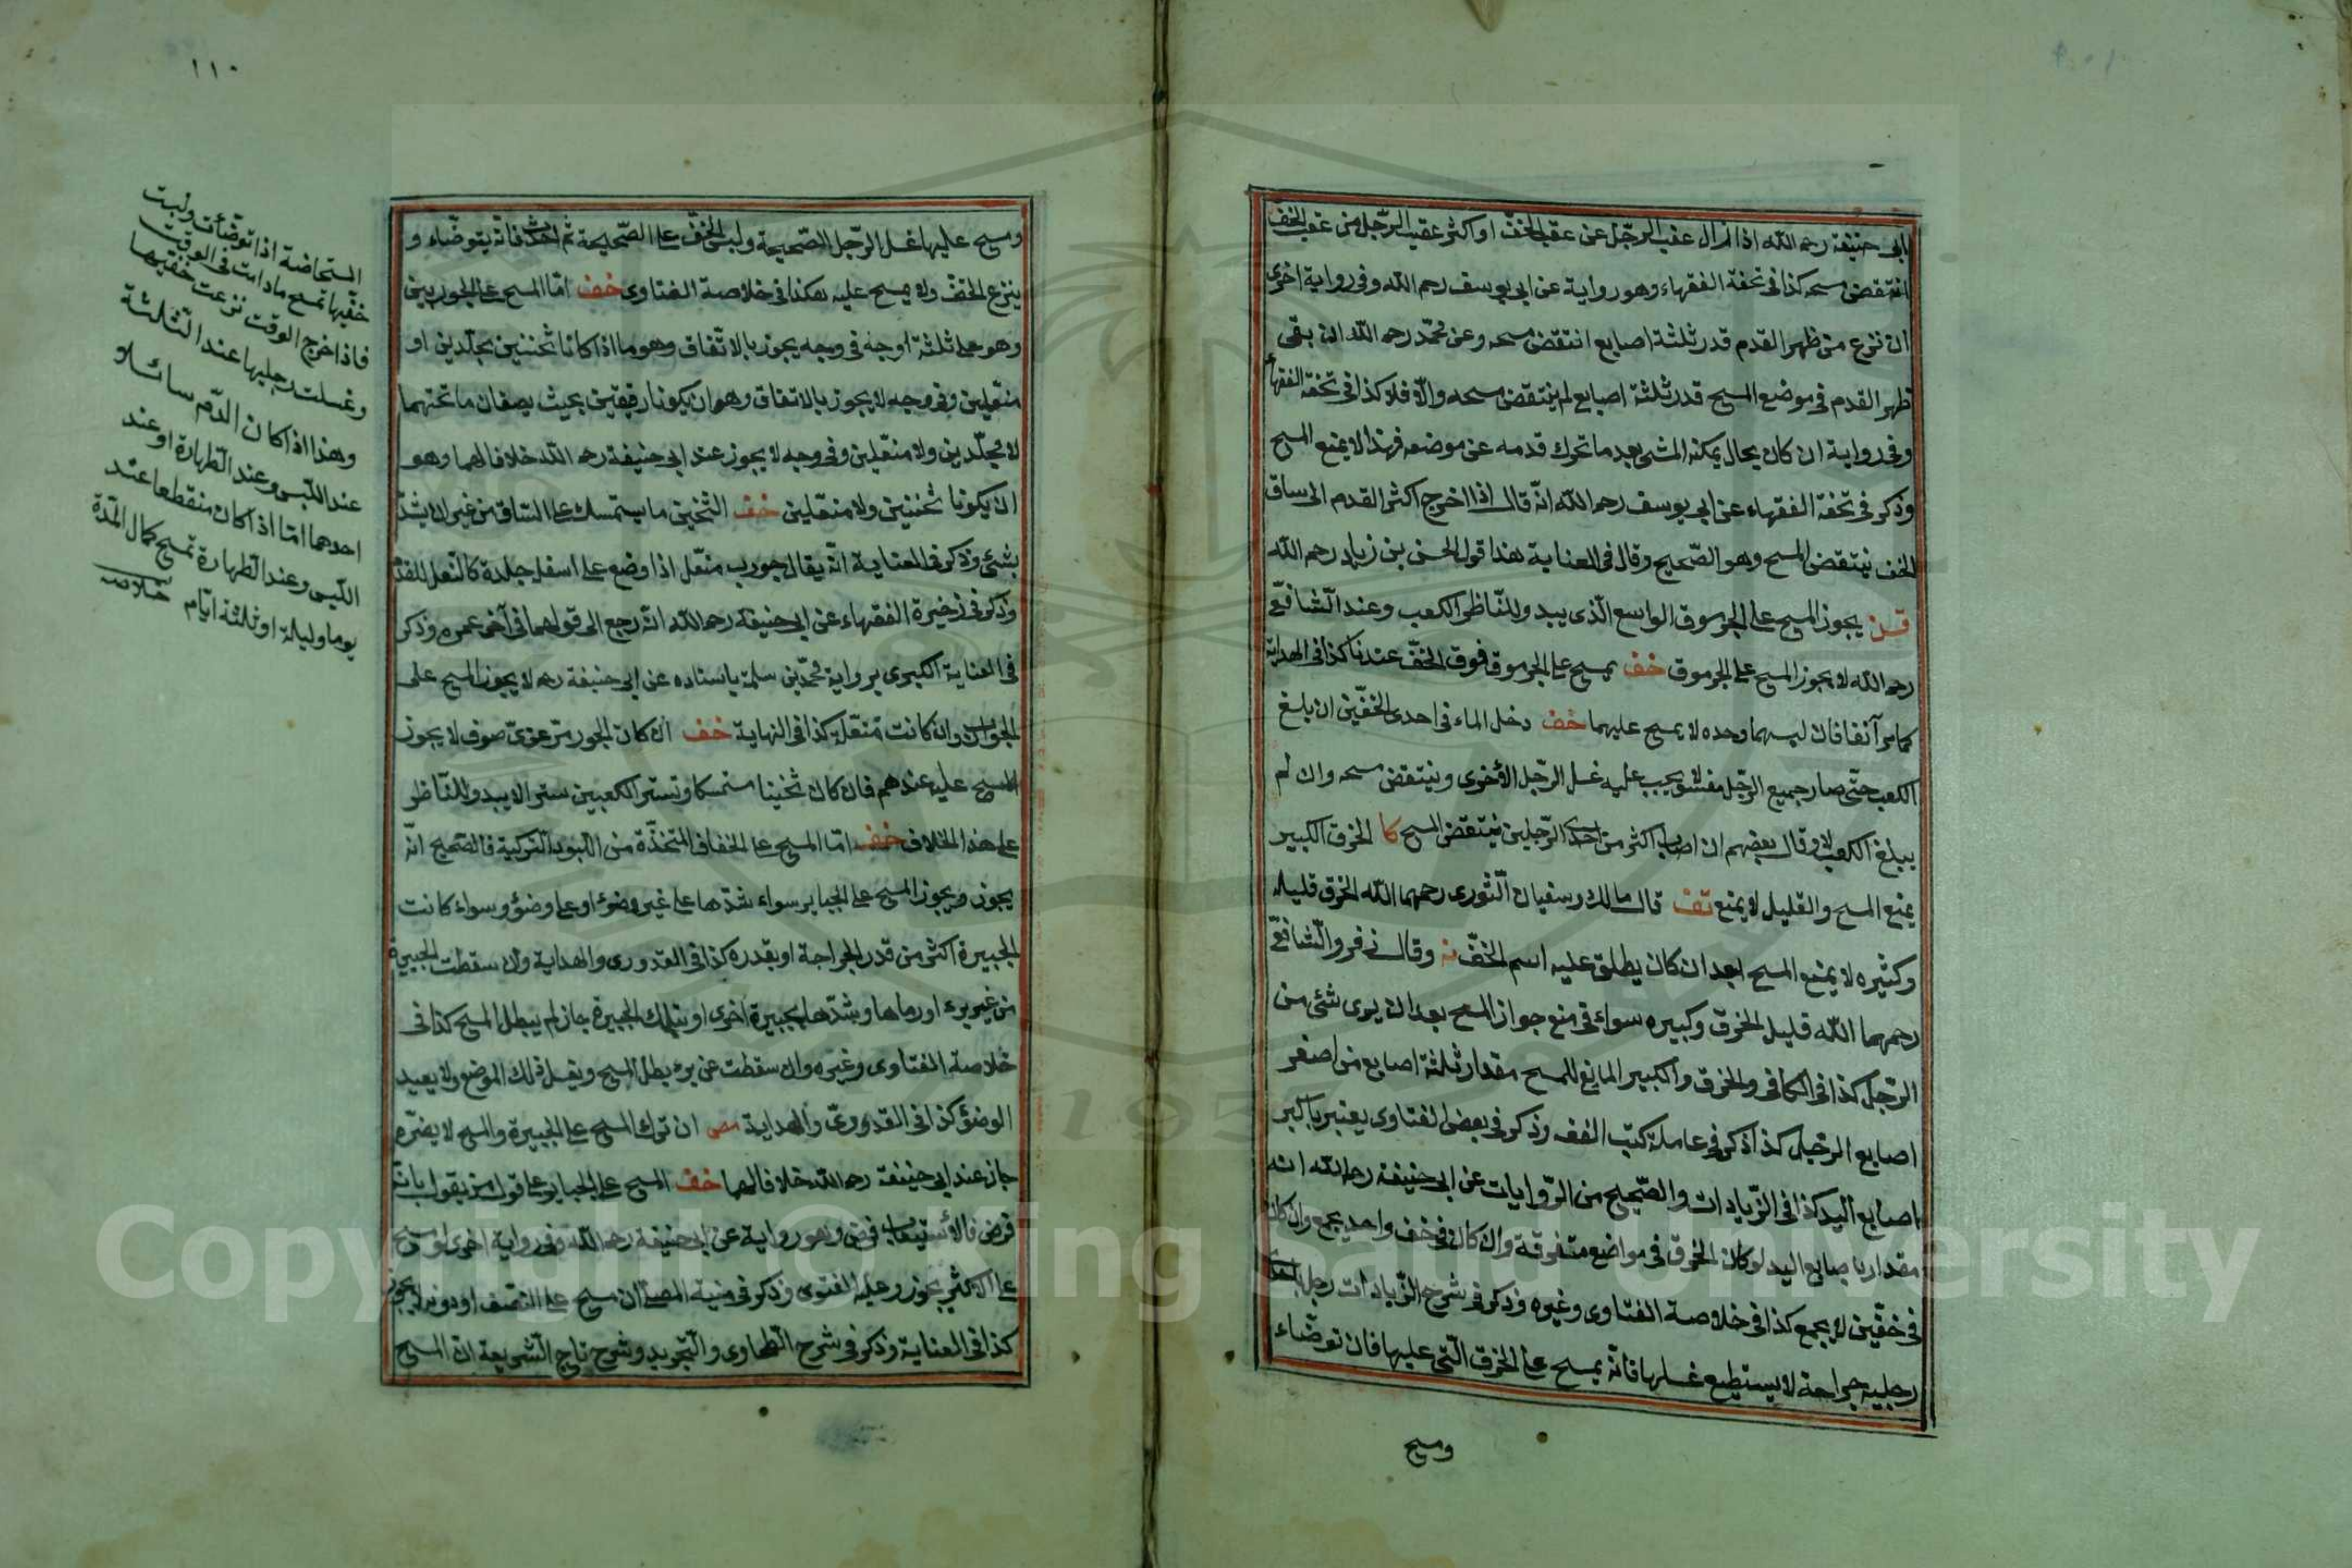 ابى حنيفة رحمه الله اذا زال عقب الرّجل عن عقب الخفّ او اكثر عقب الرّجل من عقب الخفّ
انتقض مسحه كذا فى تحفة الفقهاء وهو رواية عن ابى يوسف رحمه الله وفى رواية اخرى
ان نزع من ظهر القدم قدر ثلثة اصابع انتقض مسحه وعن محمّد رحمه الله ان بقى
ظهر القدم فى موضع المسح قدر ثلثة اصابع لم ينتقض مسحه والّا فلا كذا فى تحفة الفقهاء
وفى رواية ان كان بحال يمكنه المشى بعد ما تحرك قدمه عن موضعه فهذا لا يمنع المسح
وذكر فى تحفة الفقهاء عن ابى يوسف رحمه الله انّه قال اذا اخرج اكثر القدم الى ساق
الخف ينتقض المسح وهو الصّحيح وقال فى العناية هذا قول الحسن بن زياد رحمه الله
يجوز المسح على الجرموق الواسع الّذى يبدو للنّاظر الكعب وعند الشّافعىّ
رحمه الله لا يجوز المسح على الجرموق خف يمسح على الجرموق فوق الخفّ عندنا كذا فى الهداية
كما مر آنفا فان لبسهما وحده لا يمسح عليهما خف دخل الماء فى احدى الخفّين ان بلغ
الكعب حتّى صار جميع الرّجل مغسولا يجب عليه غسل الرّجل الأخرى وينتقض مسحه وان لم
يبلغ الكعب لا وقال بعضهم ان اصاب اكثر من احدى الرّجلين ينتقض المسح كا الخرق الكبير
يمنع المسح والقليل لا يمنع تف قال مالك وسفيان الثّورى رحمهما الله الخرق قليله
وكثيره لا يمنع المسح بعد ان كان يطلق عليه اسم الخفّ وقال زفر والشّافعىّ
رحمهما الله قليل الخرق وكبيره سواء فى منع جواز المسح بعد ان يرى شئ من
الرّجل كذا فى الكافى والخرق والكبير المانع للمسح مقدار ثلثة اصابع من اصغر
اصابع الرّجل كذا ذكر فى عامة كتب الفقه وذكر فى بعض الفتاوى يعتبر باكبر
اصابع اليد كذا فى الزّيادات والصّحيح من الرّوايات عن ابى حنيفة رحمه الله انه
مقدار باصابع اليد لو كان الخرق فى مواضع متفرقة وان كان فى خف واحد يجمع وان كان
فى خفّين لا يجمع كذا فى خلاصة الفتاوى وغيره وذكر فى شرح الزّيادات رجل باحدى
رجليه جراحة لا يستطيع غسلها فانّه يمسح على الخرق الّتى عليها فان توضّاء
ومسح
١١٠
ومسح عليها غسل الرّجل الصّحيحة ولبس الخفّ على الصّحيحة ثم احدث فانّه يتوضّاء و
ينزع الخفّ ولا يمسح عليه هكذا فى خلاصة الفتاوى خف امّا المسح على الجوربين
وهو على ثلثة اوجه فى وجه يجوز بالاتّفاق وهو ما اذا كانا ثخينين مجلّدين او
منعّلين وفى وجه لا يجوز بالاتفاق وهو ان يكونا رقيقين بحيث يصفان ما تحتهما
لا مجلّدين ولا منعّلين وفى وجه لا يجوز عند ابى حنيفة رحمه الله خلافا لهما وهو
ان يكونا ثخينين ولا منعّلين خف الثخين ما يستمسك على الساق من غير ان يشدّ
بشئ وذكر فى العناية انّه يقال جورب منعّل اذا وضع على اسفله جلدة كالنعل للقدم
وذكر فى ذخيرة الفقهاء عن ابى حنيفة رحمه الله انه رجع الى قولهما فى آخر عمره وذكر
فى العناية الكبرى برواية محمّد بن سلمة باسناده عن ابى حنيفة رحمه لا يجوز المسح على
الجوارب وان كانت منعّلة كذا فى النهاية خف ان كان الجورب مرعزىّ صوف لا يجوز
المسح عليه عندهم فان كان ثخينا مستمسكا وتستر الكعبين سترا لا يبدو للنّاظر
على هذا الخلاف خف امّا المسح على الخفاف المتخذّة من اللبود التركية فالصّحيح انّه
يجوز ويجوز المسح على الجباير سواء شدّها على غير وضوء او على وضوء وسواء كانت
الجبيرة اكثر من قدر الجراحة او بقدره كذا فى القدورى والهداية وان سقطت الجبيرة
من غير برء او رماها وشدّها بجبيرة اخرى او بتلك الجبيرة جاز لم يبطل المسح كذا فى
خلاصة الفتاوى وغيره وان سقطت عن برء بطل المسح ويغسل ذلك الموضع ولا يعيد
الوضوء كذا فى القدورىّ والهداية ان ترك المسح على الجبيرة والمسح لا يضرّه
جاز عند ابى حنيفة رحمه الله خلافا لهما خف المسح على الجباير على قول من يقول بانّه
فرض فالأستيعاب فرض وهو رواية عن ابى حنيفة رحمه الله وفى رواية اخرى لو مسح
على الاكثر يجوز وعليه الفتوى وذكر فى منية المصلّى ان مسح على النّصف او دونه لا يجوز
كذا فى العناية وذكر فى شرح الطّحاوى والتّجريد وشرح تاج الشّريعة انّ المسح
المستحاضة اذا توضّأت ولبست
خفّيها تمسح ما دامت فى الوقت
فاذا خرج الوقت نزعت خفّيها
وغسلت رجليها عند الثّلثة
وهذا اذا كان الدّم سائلا
عند اللّبس وعند الطّهارة او عند
احدهما امّا اذا كان منقطعا عند
اللّبس وعند الطّهارة تمسح كمال المدّة
يوما وليلة او ثلثة ايّام خلاصه
Copyright © King Saud University
1957